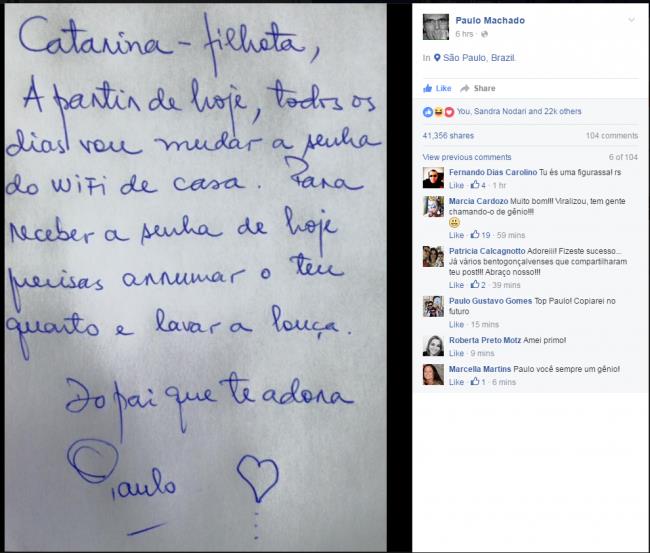 Catarina - filhota,
A partir de hoje, todos os
dias vou mudar a senha
do WiFi de casa. Para
receber a senha de hoje
precisas arrumar o teu
quarto e lavar a louça.
Do pai que te adora
Paulo
Paulo Machado
6 hrs ·
In São Paulo, Brazil.
Like Share
You, Sandra Nodari and 22k others
41,356 shares 104 comments
View previous comments 6 of 104
Fernando Dias Carolino Tu és uma figurassa! rs
Like · 4 · 1 hr
Marcia Cardozo Muito bom!!! Viralizou, tem gente
chamando-o de gênio!!!
Like · 19 · 59 mins
Patricia Calcagnotto Adoreiii! Fizeste sucesso...
Já vários bentogonçalvenses que compartilharam
teu post!!! Abraço nosso!!!
Like · 2 · 39 mins
Paulo Gustavo Gomes Top Paulo! Copiarei no
futuro
Like · 15 mins
Roberta Preto Motz Amei primo!
Like · 9 mins
Marcella Martins Paulo você sempre um gênio!
Like · 1 · 6 mins